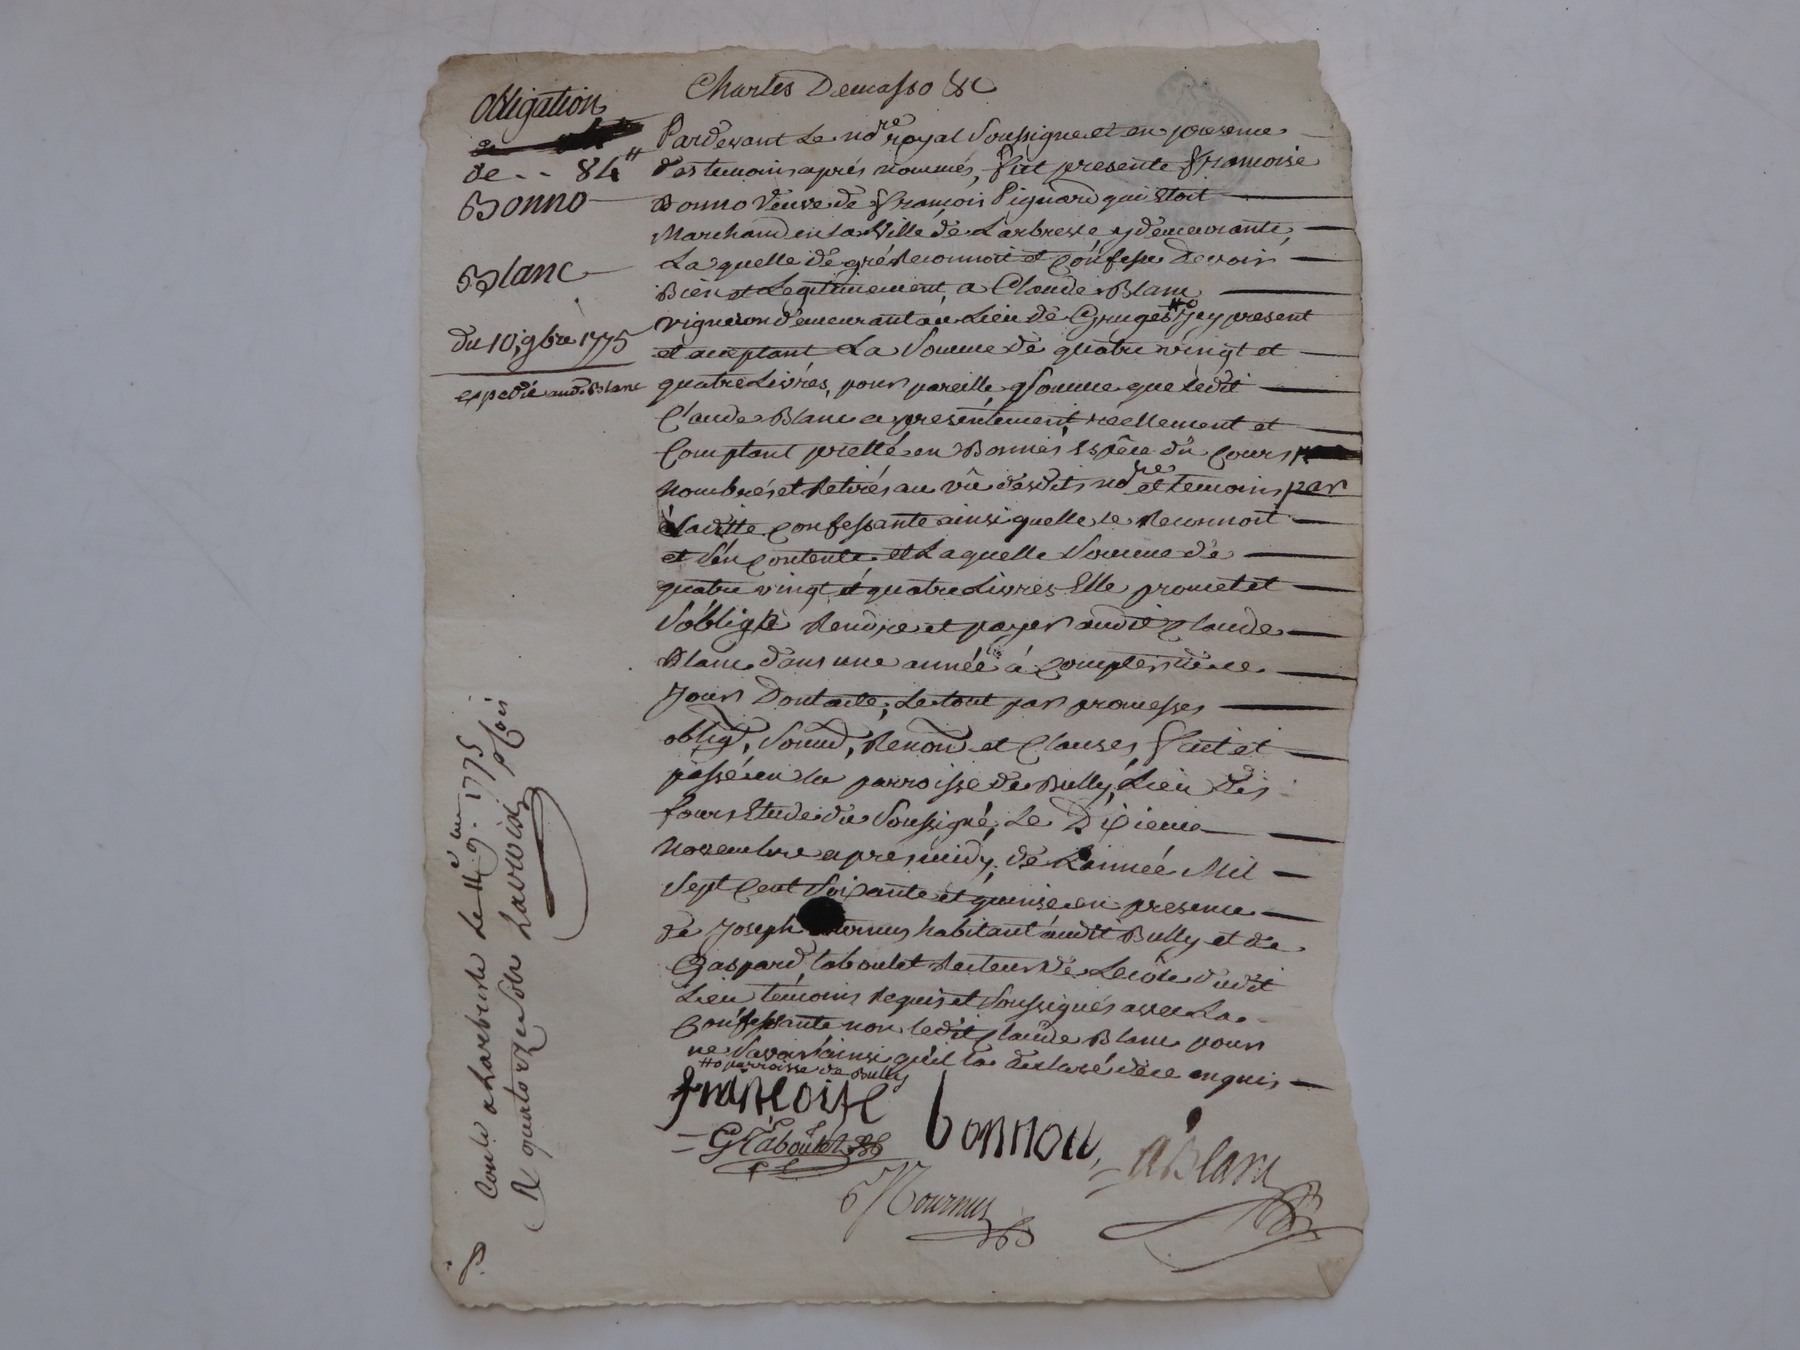 Charles Demasso &c
obligation
de
de - - 84 ₶
Bonno
Blanc
du 10 9bre 1775
expedié aud. Blanc
Pardevant Le no.re royal Soussigné et en presence
des temoins aprés nommés, fut presente francoise
Bonno veuve de francois Pignard qui Etoit
Marchand en La Ville de Larbresle y demeurante,
La quelle de gré Reconnoit et Confesse devoir
Bien et Legitimement, a Claude Blanc
vigneron demeurant au Lieu de Gruges #o Jcy present
et acceptant La Somme de quatre vingt et
quatre Livres, pour pareille Somme que ledit
Claude Blanc a presentement, réellement et
Comptant pretté en Bonnes Espêce du Cours
nombrés et Retirés au vû desdits no.re et temoins par
Laditte Confessante ainsi quelle le Reconnoit
et s'en Contente, et Laquelle Somme de
quatre vingt et quatre Livres Elle promet et
s'oblige Rendre et payer audit Claude
Blanc dans une année à Compter de ce
Jour Dontacte, Le tout par promesses
oblig.d, Soumd, Renond et Clauses, fait et
passé en la parroisse de Bully, Lieu des
fours Etude du Soussigné, Le Dixieme
Novembre aprés midy, de L'année Mil
Sept Cent Soixante et quinze en presence
de Joseph habitant audit Bully et de
Gaspard Laboulet Recteur de Lecole dudit
Lieu temoins Requis et Soussignés avec La
Confessante non ledit Claude Blanc pour
ne Savoir ainsi qu'il la declaré de ce enquis
#o parroisse de Bully
francoise bonnou
G Laboulet
Blanc
Tournus
Conlé a Larbresle Le 14 9.bre 1775
R quatorze Sols Lavvoid